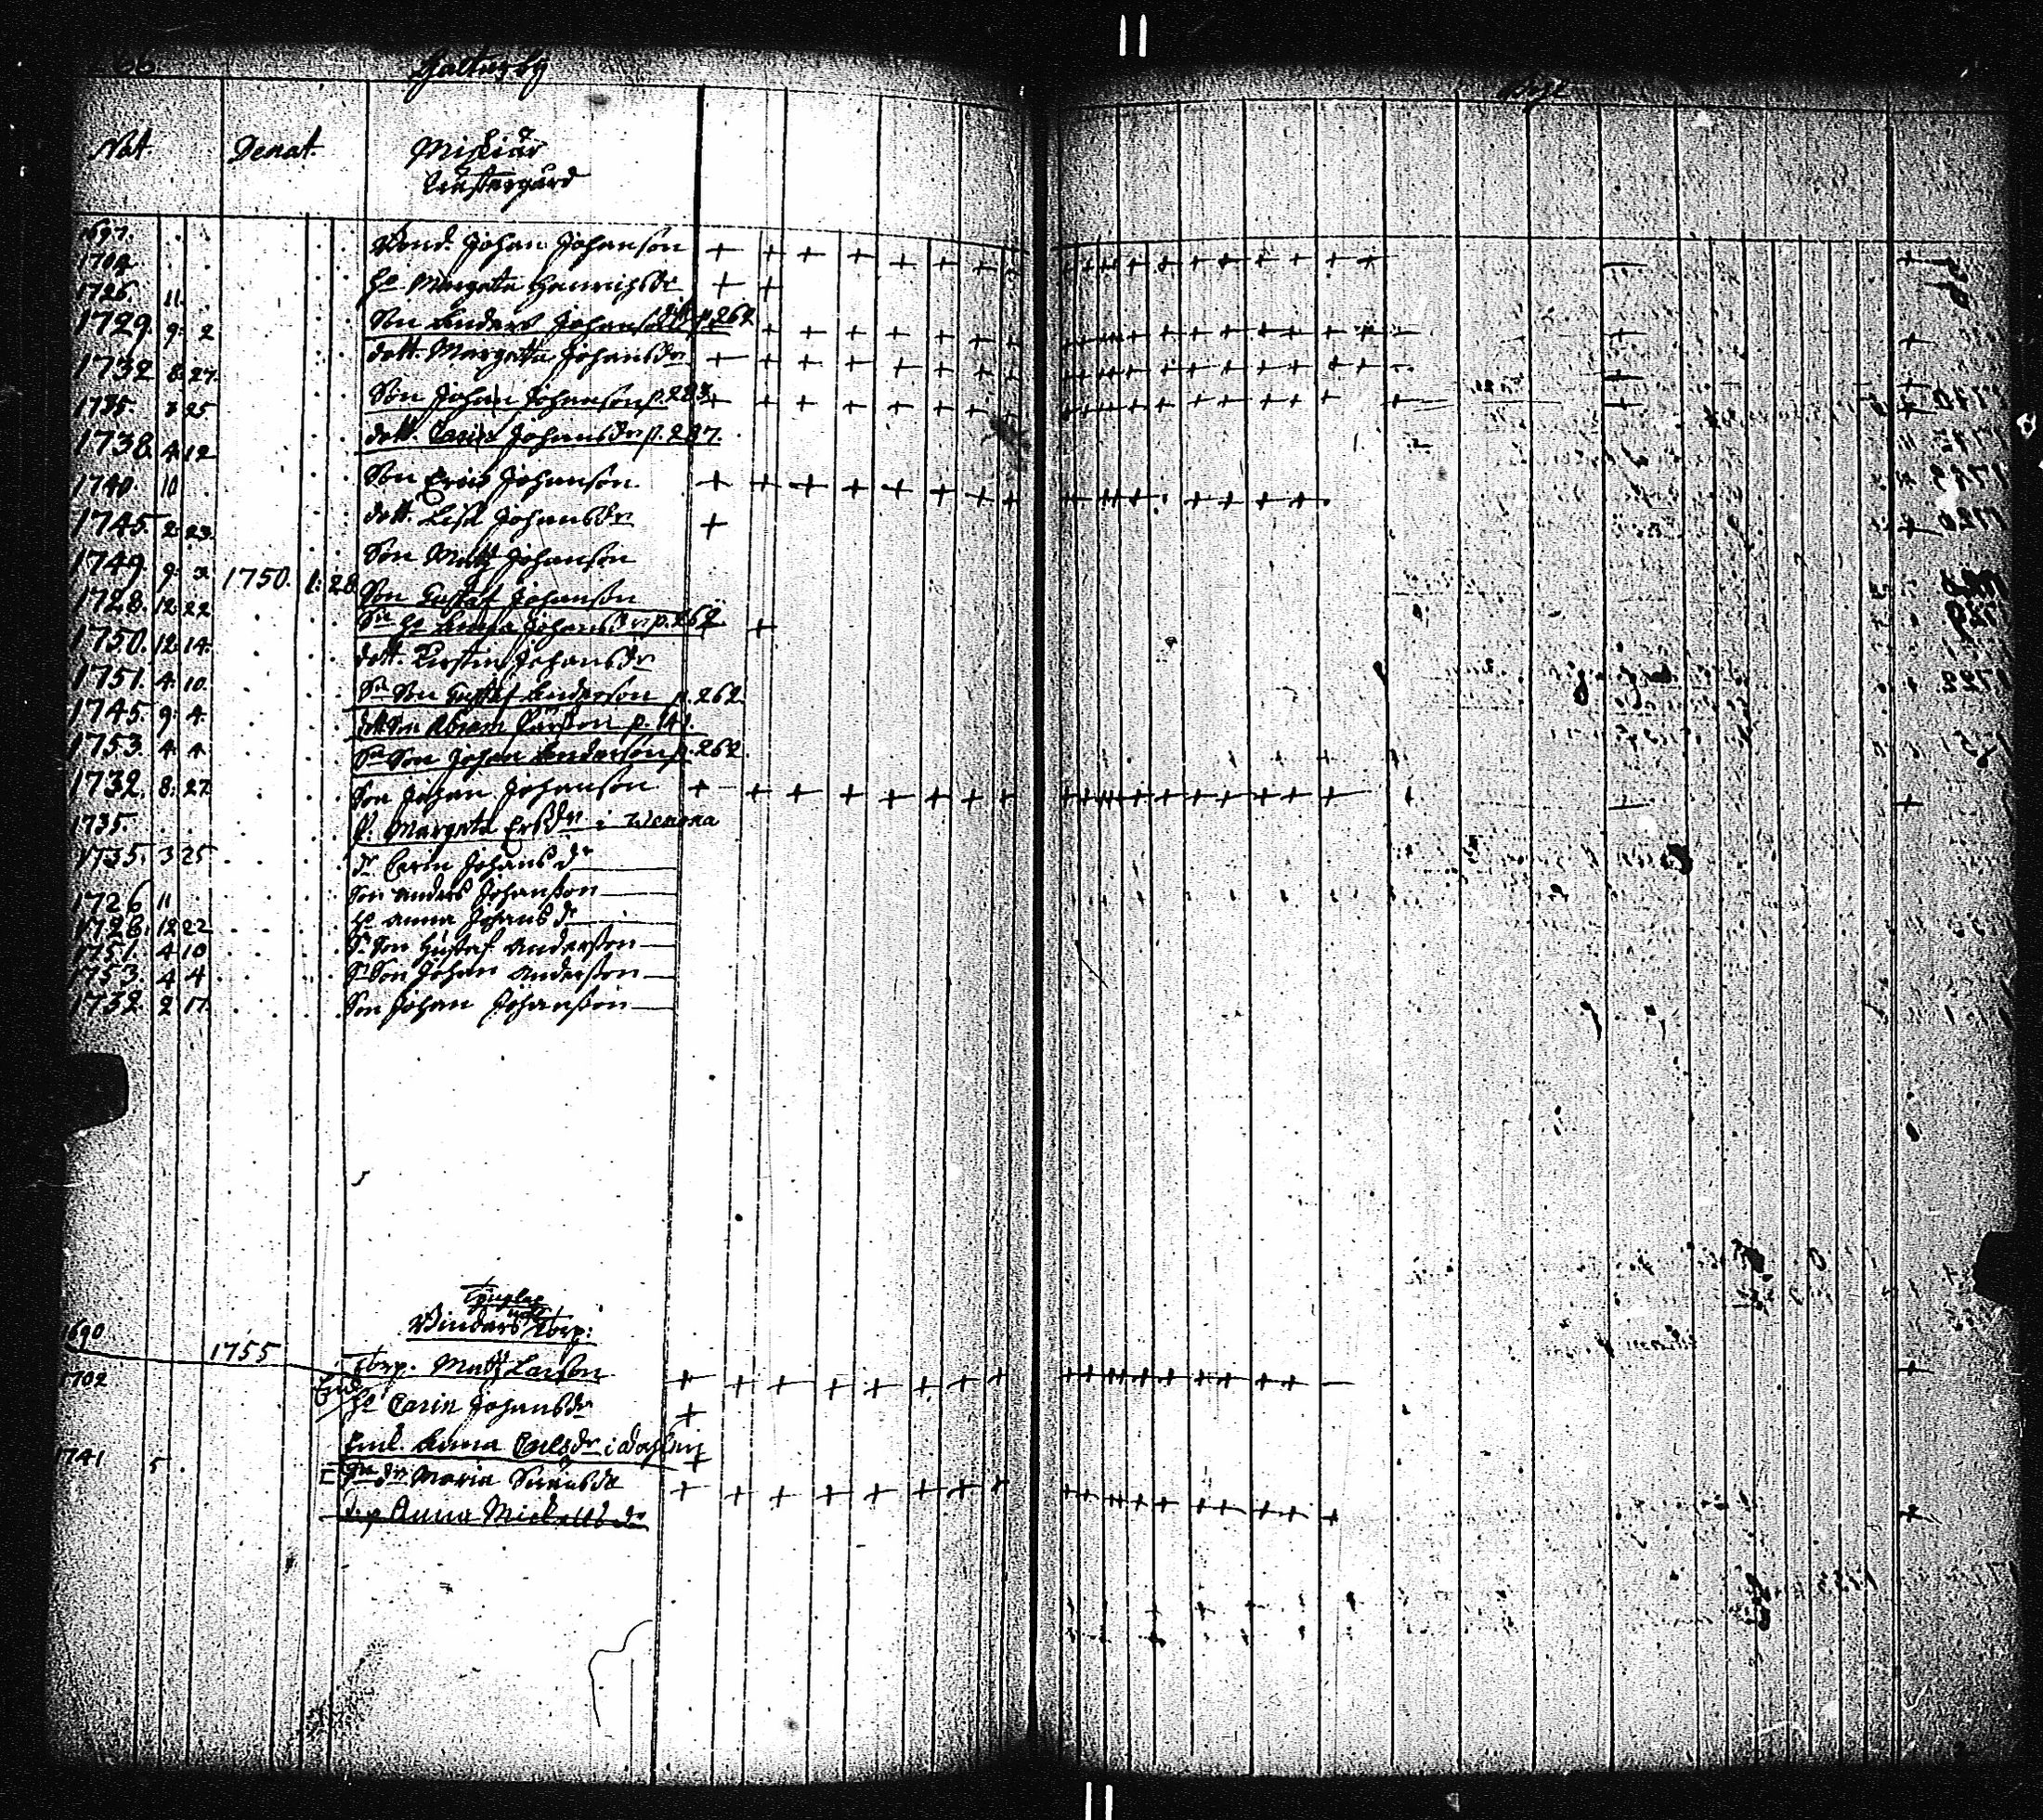 66
Galtarby
Nat. Denat. Miskiär
Wästergård
1697. Bond. Johan Johanson
1704. h. Margeta Henrichsdr
1726. 11. Son Anders Johanson p. 262
1729. 9. 2 dott. Margetta Johansdr
1732 8. 27. Son Johan Johanson p. 283
1735. 3 25 dott. Carin Johansdr p. 287.
1738. 4. 12 Son Eric Johanson
1740. 10 dott. Lisa Johansdr
1745. 2. 23. Son Matz Johanson
1749. 9. 3. 1750. 1. 28. Son Gustaf Johanson
1728. 12. 22 Sn h. Anna Johansdr p. 262
1750. 12. 14. dott. Kirstin Johansdr
1751. 4. 10. Sn Son Gustaf Anderson p. 262
1745. 9. 4. dott Son Abram p. 141.
1753. 4. 4. Sn Son Johan Anderson p. 262
1732. 8. 27. Son Johan Johanson
1735. h. Margeta Ersdr i Wenona
1735. 3 25 dr Carin Johans dr
1726 11 Son Anders Johanson
1728. 12 22 h. Anna Johans dr
1751. 4 10 Sn Son Gustaf Anderson
1753. 4 4 Sn Son Johan Anderson
1732. 2 17. Son Johan Johanson
Binders Torp:
1690 1755 Torp. Matz Larson
1702 h. Carin Johansdr
Enk. Anna Carlsdr i
1741 5 dr Maria Svensdr
Anna Mickelsdr